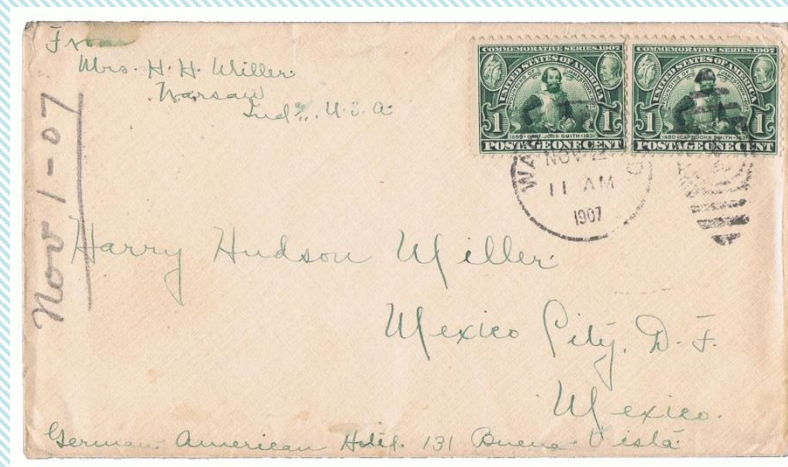 From
Mrs. H. H. Miller.
Warsaw
Ind., U.S.A.
COMMEMORATIVE SERIES, 1907
UNITED STATES OF AMERICA
1 1
1580 CAPT. JOHN SMITH 1631
POSTAGE ONE CENT
COMMEMORATIVE SERIES, 1907
UNITED STATES OF AMERICA
1 1
1580 CAPT. JOHN SMITH 1631
POSTAGE ONE CENT
NOV 2
11 AM
1907
Nov 1-07
Harry Hudson Miller
Mexico City, D. F.
Mexico.
German American Hotel. 131 Buena Vista